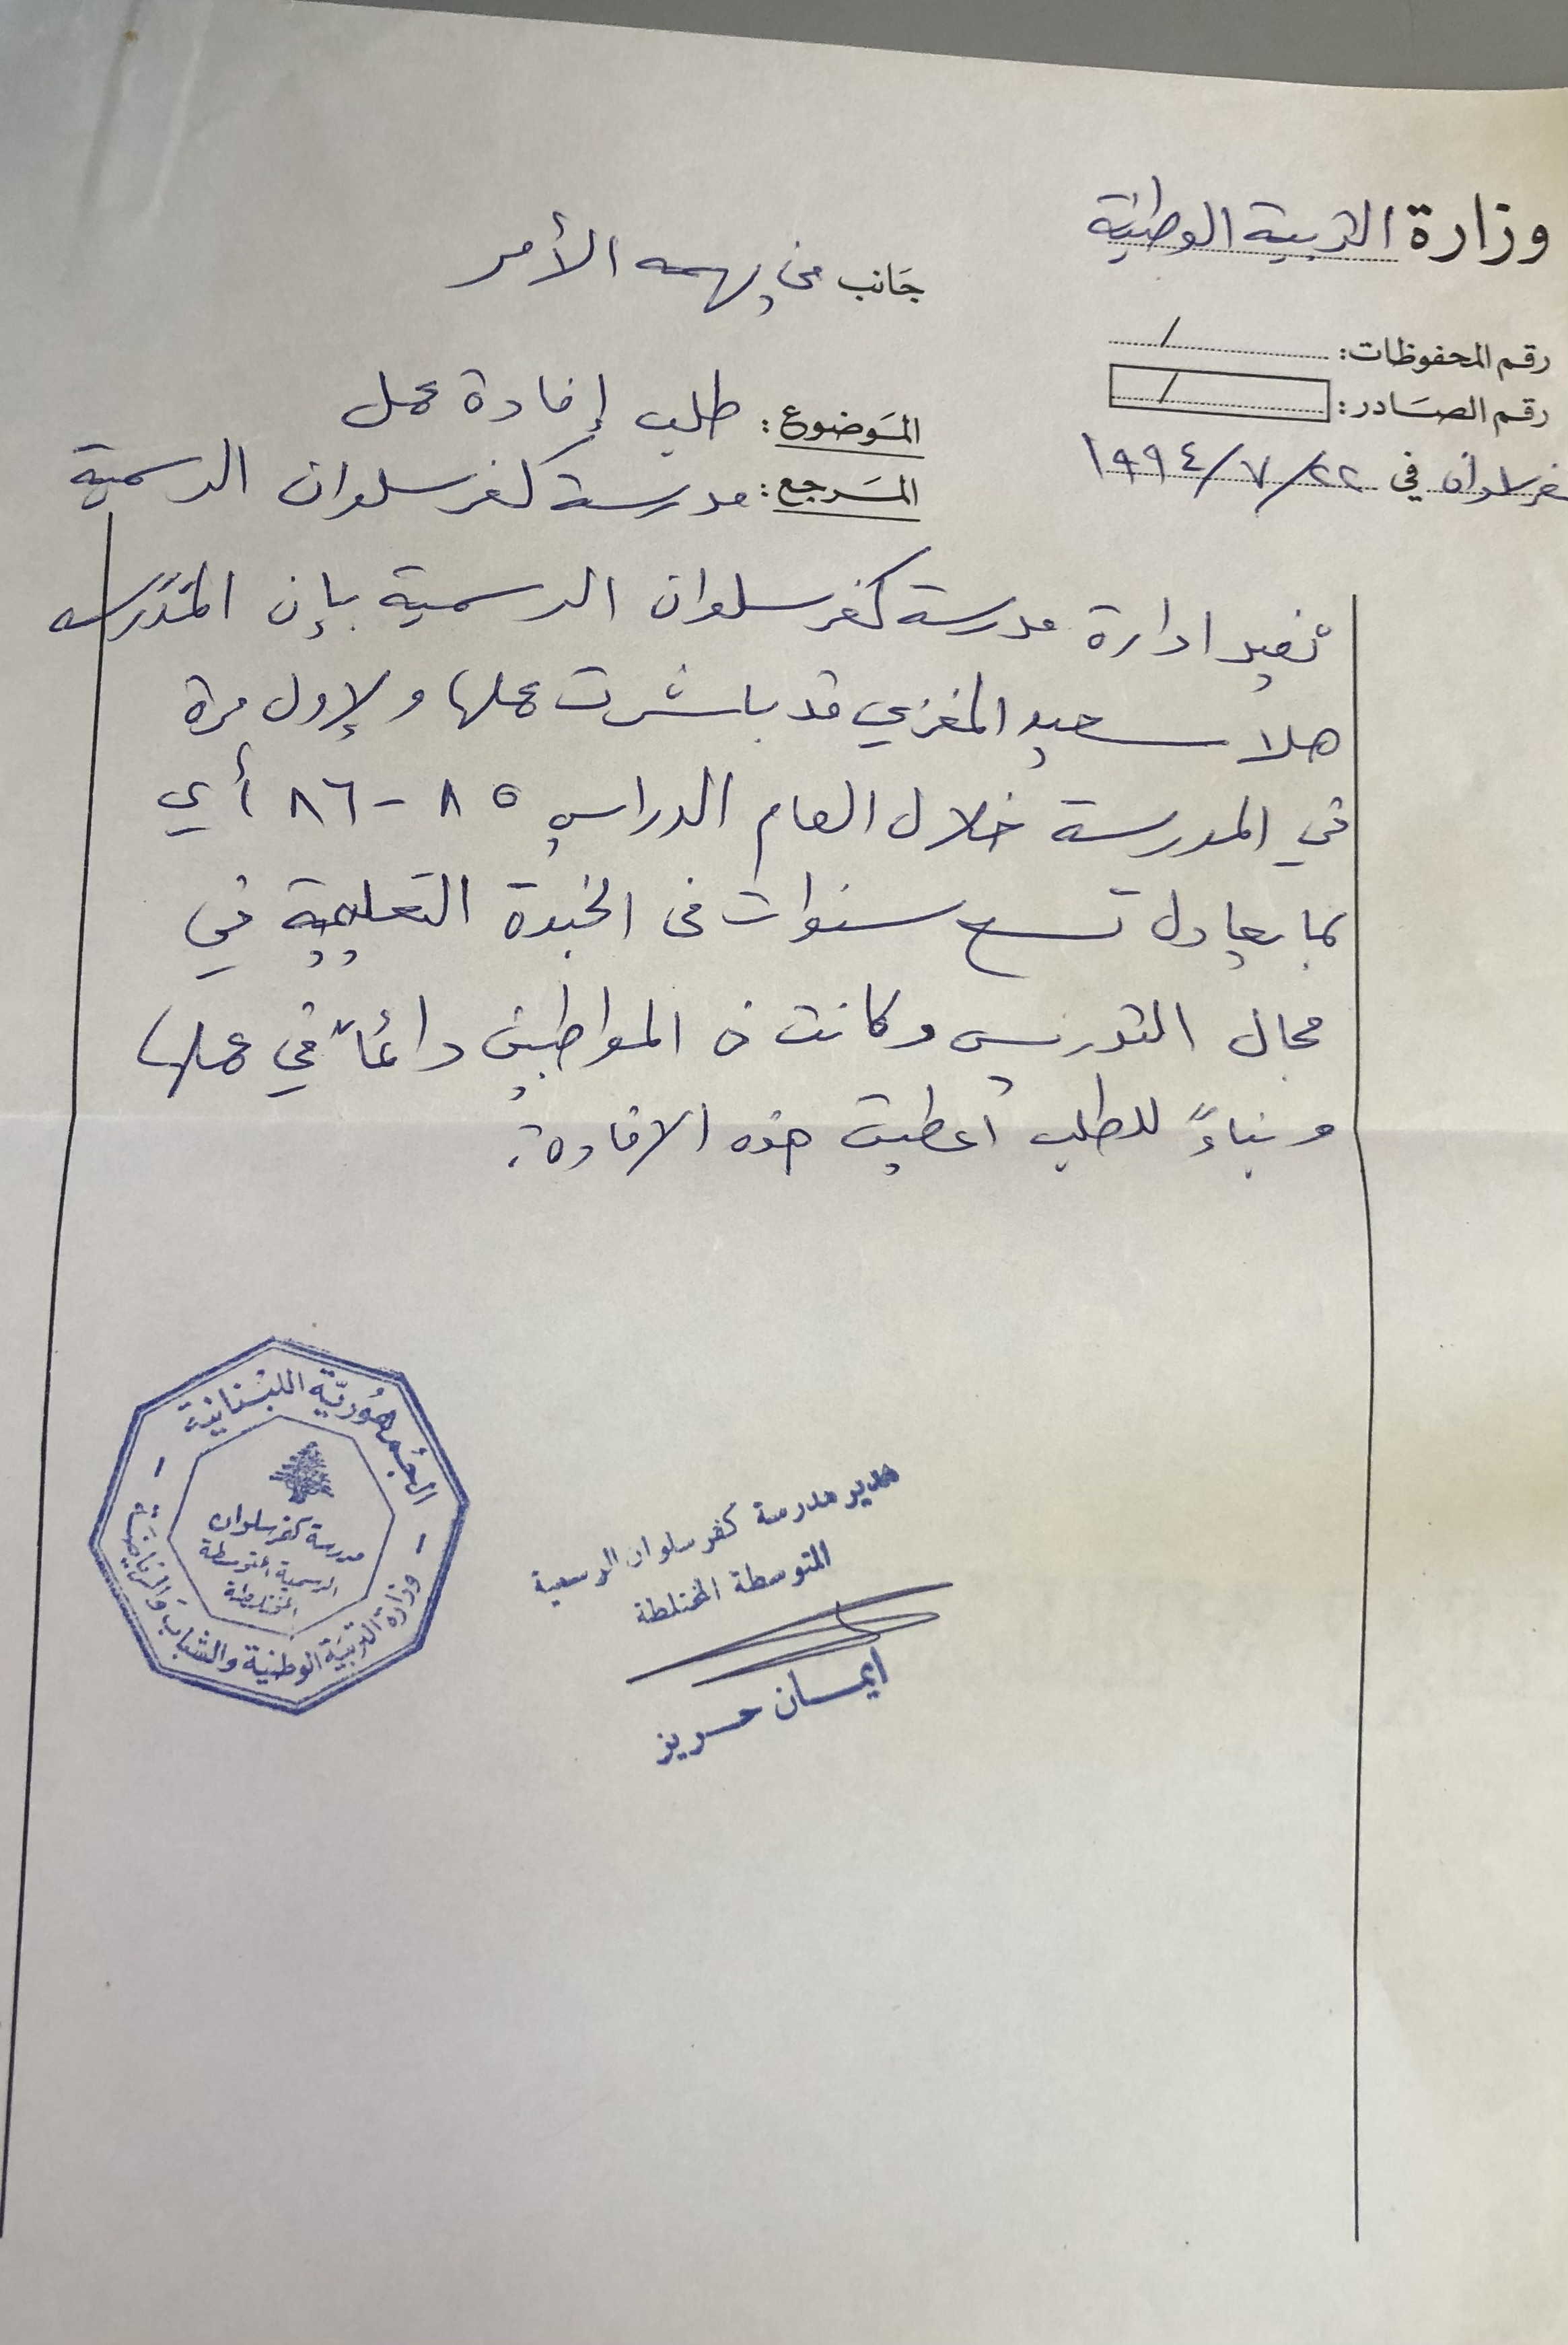 وزارة التربية الوطنية
جانب من يهمه الأمر
رقم المحفوظات: /
رقم الصادر: /
فرسلوان في ٢٢/٧/١٩٩٤
الموضوع: طلب إفادة عمل
المرجع: مدرسة كفرسلوان الرسمية
تفيد ادارة مدرسة كفرسلوان الرسمية بإن المدرسه
هلا سعيد المغربي قد باشرت عملها ولإول مرة
في المدرسة خلال العام الدراسي ٨٥-٨٦ أي
بما يعادل تسع سنوات من الخبرة التعليمية في
مجال التدريس وكانت من المواظبين دائماً في عملها
وبناءً للطلب اعطيت هذه الافادة.
الجمهورية اللبنانية
مدرسة كفرسلوان
الرسمية المتوسطة
المختلطة
وزارة التربية الوطنية والشباب والرياضة
مدير مدرسة كفرسلوان الرسمية
المتوسطة المختلطة
ايمان حريز